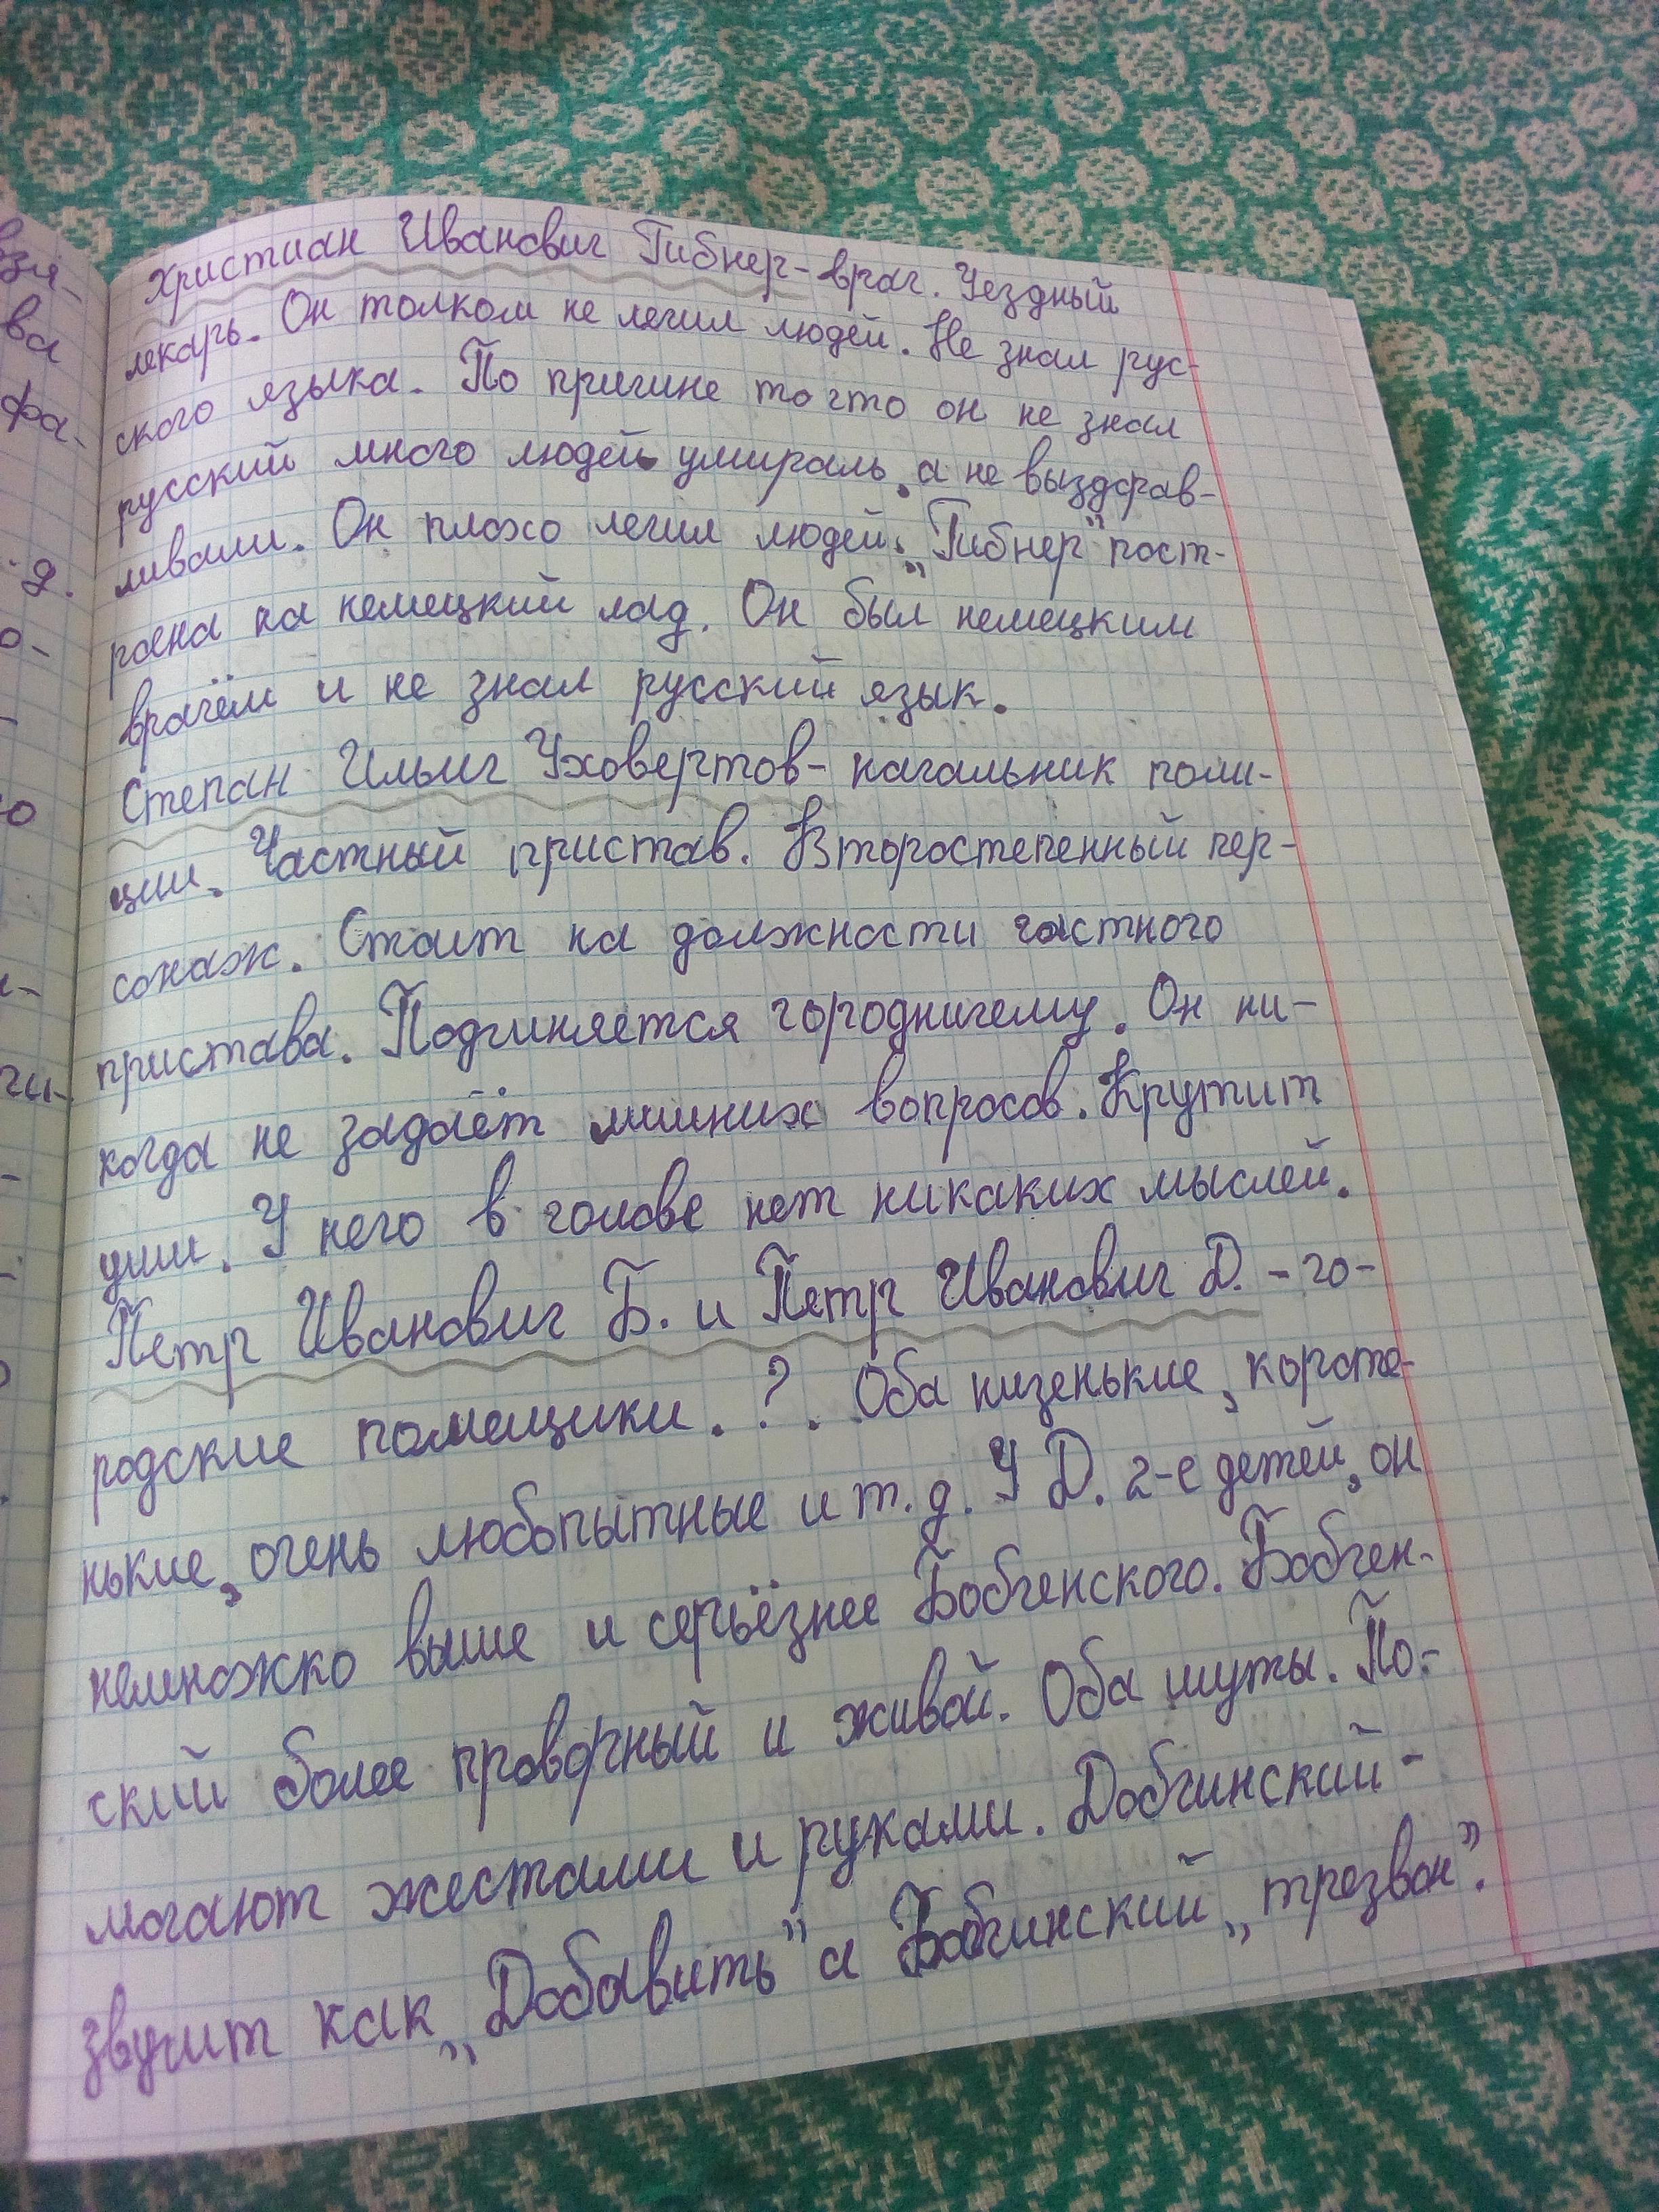 Христиан Иванович Гибнер- врач. Уездный
лекарь. Он толком не лечил людей. Не знал рус-
ского языка. По причине то что он не знал
русский много людей умираль, а не выздорав-
ливали. Он плохо лечил людей. „Гибнер" пост-
роена на немецкий лад. Он был немецким
врачём и не знал русский язык.
Степан Ильич Уховертов- начальник поли-
ции. Частный пристав. Второстепенный пер-
сонаж. Стоит на должности частного
пристава. Подчиняется городничему. Он ни-
когда не задаёт лишних вопросов. Крутит
уши. У него в голове нет никаких мыслей.
Петр Иванович Б. и Петр Иванович Д. - го-
родские помещики. ?. Оба низенькие, короте-
нькие, очень любопытные и т. д. У Д. 2-е детей, он
немножко выше и серьёзнее Бобченского. Бобчен-
ский более проворный и живой. Оба шуты. По-
могают жестами и руками. Добчинский -
звучит как „Добавить" а Бобчинский „трезвон".
взя-
ва
фа-
д.
о-
ю
чи-